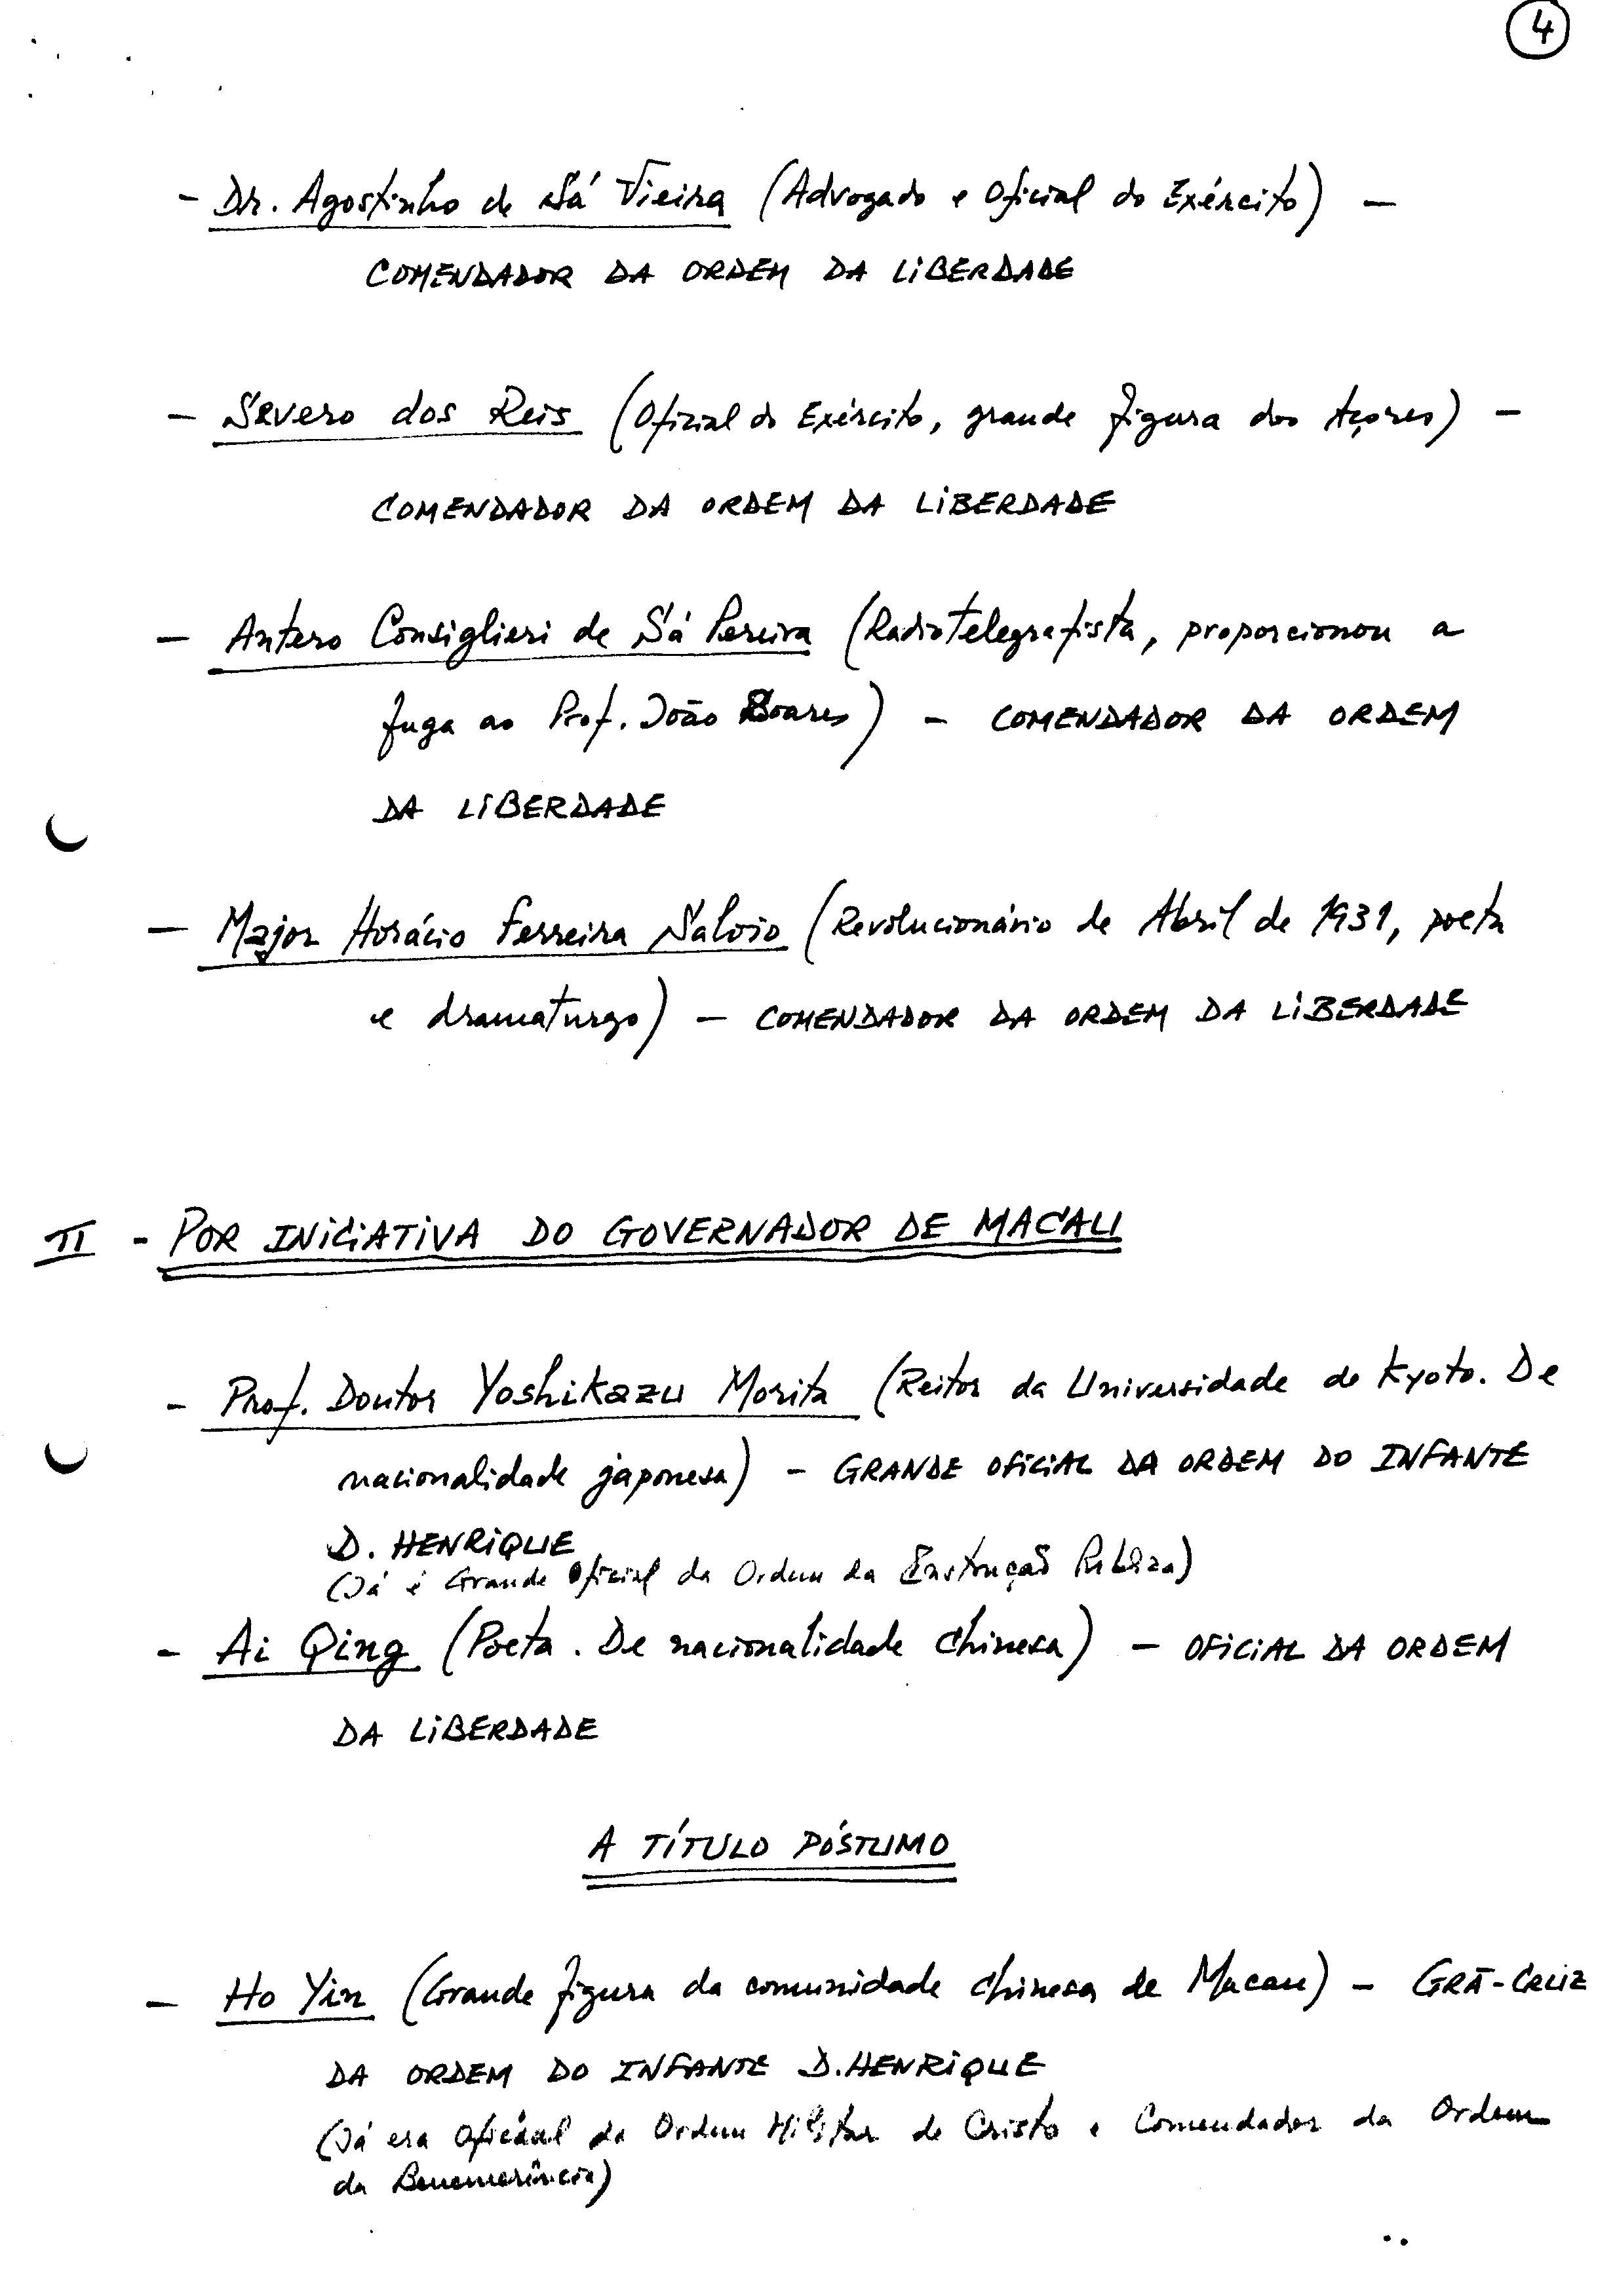 4
- Dr. Agostinho de Sá Vieira (Advogado e Oficial do Exército) -
COMENDADOR DA ORDEM DA LIBERDADE
- Severo dos Reis (Oficial do Exército, grande figura dos Açores) -
COMENDADOR DA ORDEM DA LIBERDADE
- Antero Consiglieri de Sá Pereira (Radiotelegrafista, proporcionou a
fuga ao Prof. João Soares) - COMENDADOR DA ORDEM
DA LIBERDADE
- Major Horácio Ferreira Saloio (Revolucionário de Abril de 1931, poeta
e dramaturgo) - COMENDADOR DA ORDEM DA LIBERDADE
II - POR INICIATIVA DO GOVERNADOR DE MACAU
- Prof. Doutor Yoshikazu Morita (Reitor da Universidade de Kyoto. De
nacionalidade japonesa) - GRANDE OFICIAL DA ORDEM DO INFANTE
D. HENRIQUE
(Já é Grande Oficial da Ordem da Instrução Pública)
- Ai Qing (Poeta. De nacionalidade chinesa) - OFICIAL DA ORDEM
DA LIBERDADE
A TÍTULO PÓSTUMO
- Ho Yin (Grande figura da comunidade chinesa de Macau) - GRÃ-CRUZ
DA ORDEM DO INFANTE D. HENRIQUE
(Já era Oficial da Ordem Militar de Cristo e Comendador da Ordem
da Benemerência)